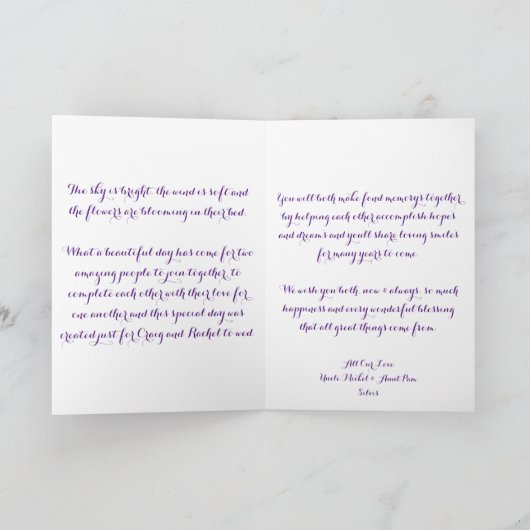 The sky is bright, the wind is soft and
the flowers are blooming in their bed.
What a beautiful day has come for two
amazing people to join together, to
complete each other with their love for
one another and this special day was
created just for Craig and Rachel to wed.
You will both make fond memorys together
by helping each other accomplish hopes
and dreams and you'll share loving smiles
for many years to come.
We wish you both, now & always, so much
happiness and every wonderful blessing
that all great things come from.
All Our Love,
Uncle Michel & Aunt Pam
Silvis